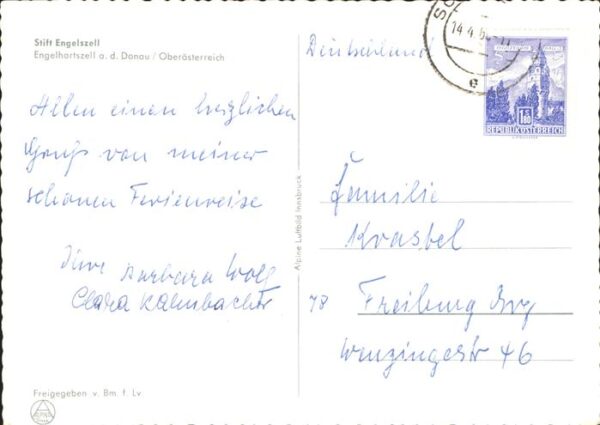 Stift Engelszell
Engelhartszell a. d. Donau / Oberösterreich
Allen einen herzlichen
Gruß von meiner
schönen Ferienreise
Ihre Barbara Wolf
Clara Kalmbach
Freigegeben v. Bm. f. Lv.
Alpine Luftbild Innsbruck
Deutschland
14.4.6
e
1.80
REPUBLIK ÖSTERREICH
Familie
Krastel
78 Freiburg Brg
Wenzingerstr 46